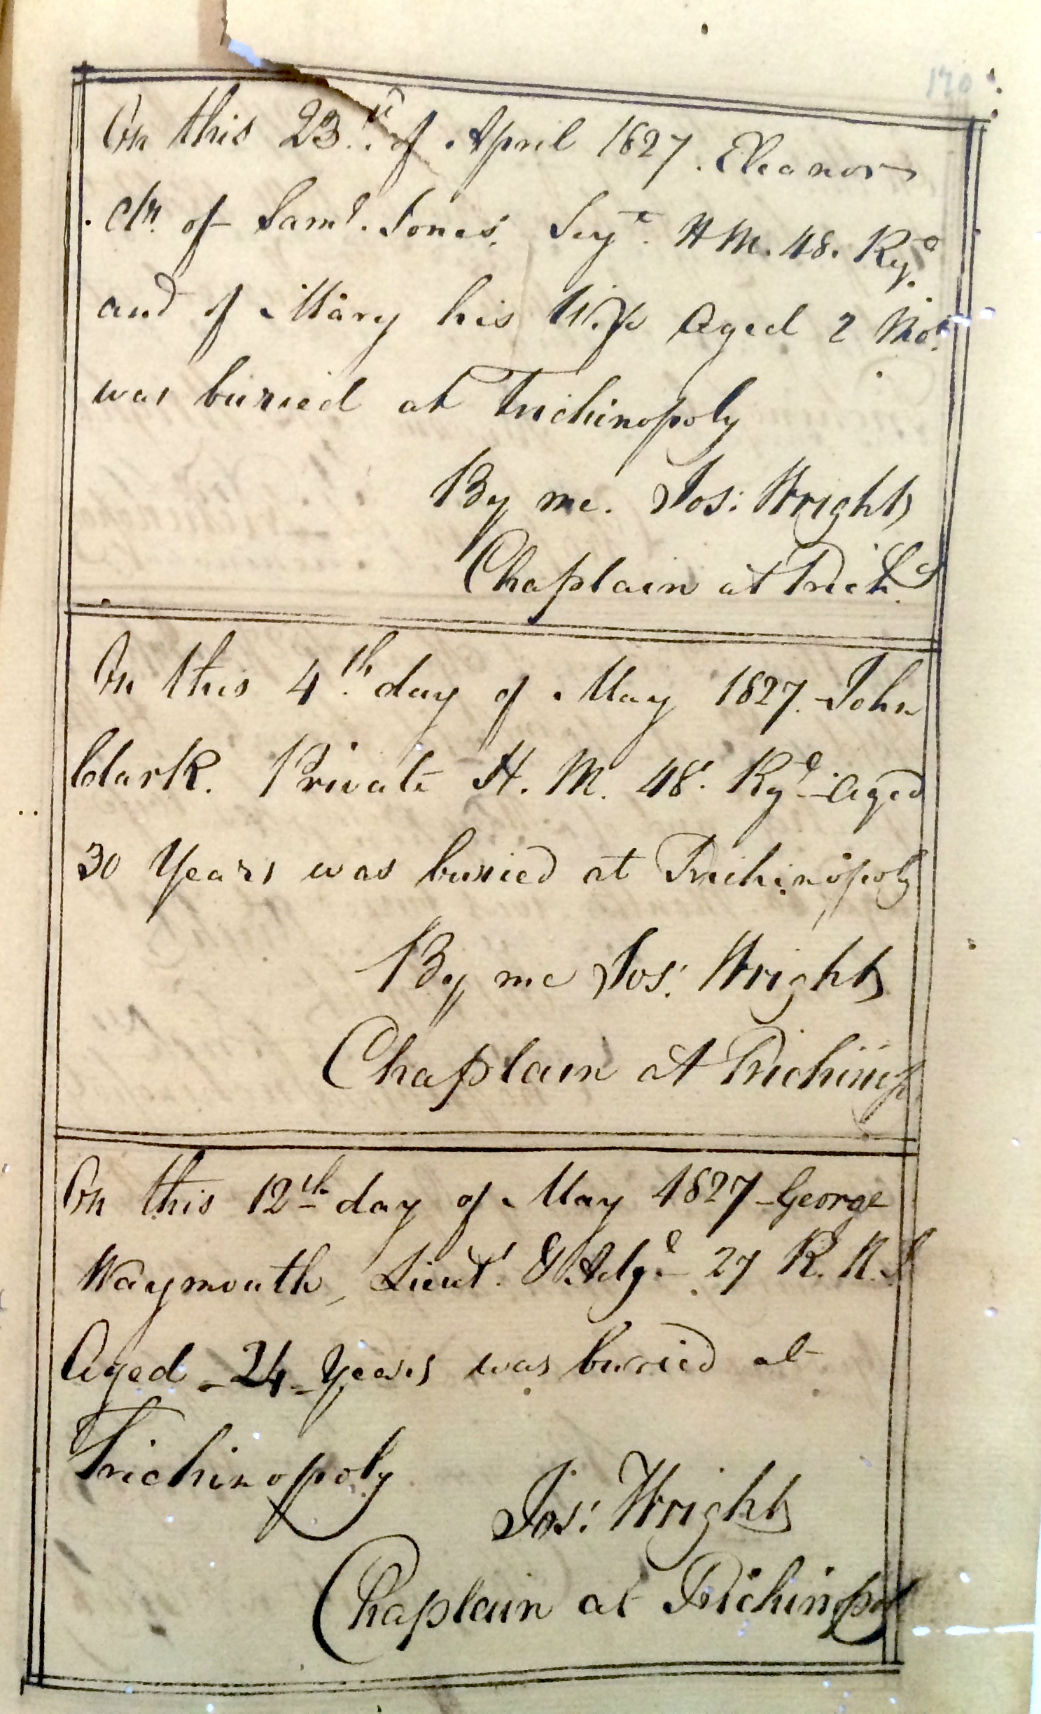 170
On this 23.rd of April 1827. Eleanor
dr. of Saml. Jones. Sejt. H M. 48. Regt.
and of Mary his Wife Aged 2 Mos.
was buried at Trichinopoly
By me. Jos: Wright
Chaplain at Trich.
On this 4th. day of May 1827. John
Clark. Private H. M. 48. Regt. Aged
30 Years was buried at Trichinopoly
By me Jos: Wright
Chaplain at Trichinop
On this 12th day of May 1827 - George
Waymouth, Lieut. & Adjt. 27 R. N. I
Aged - 24 - Years was buried at
Trichinopoly
Jos: Wright
Chaplain at Trichinopol